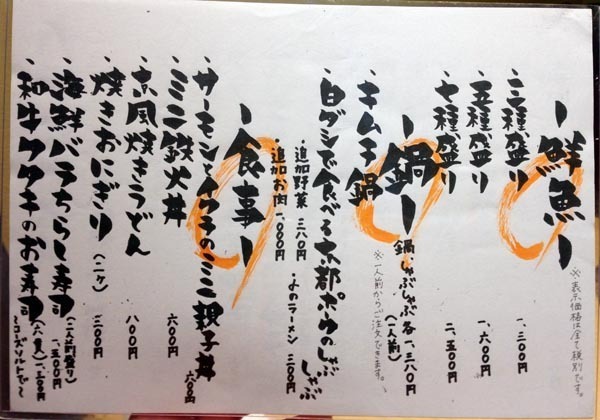 ー鮮魚ー
※表示価格は全て税別です。
・三種盛り 一、三〇〇円
・五種盛り 一、六〇〇円
・七種盛り 二、五〇〇円
ー鍋ー
鍋、しゃぶしゃぶ各一、三八〇円(一人前)
※一人前からご注文できます。
・キムチ鍋
・白グシで食べる京都ポークのしゃぶしゃぶ
追加野菜 三八〇円
・〆のラーメン 三〇〇円
追加お肉 一、〇〇〇円
ー食事ー
・サーモンとイクラのミニ親子丼 六〇〇円
・ミニ鉄火丼 六〇〇円
・京風焼きうどん 八〇〇円
・焼きおにぎり(二ケ) 三〇〇円
・海鮮バラちらし寿司(二人前盛り) 一、五〇〇円
・和牛タタキのお寿司(六貫) 一、二〇〇円
〜ローズソルトで〜